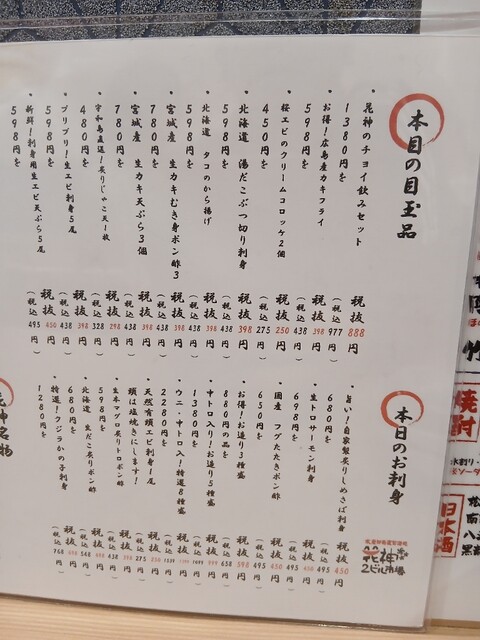 本日の目玉品
・花神のチョイ飲みセット
1380円を
税抜888円
(税込977円)
・お得!広島産カキフライ
598円を
税抜398円
(税込438円)
・桜エビのクリームコロッケ2個
450円を
税抜250円
(税込275円)
・北海道 湯だこぶつ切り刺身
598円を
税抜398円
(税込438円)
・北海道 タコのから揚げ
598円を
税抜398円
(税込438円)
・宮城産 生カキむき身ポン酢3
780円を
税抜398円
(税込438円)
・宮城産 生カキ天ぷら3個
780円を
税抜398円
(税込438円)
・宇和島直送!炙りじゃこ天1枚
480円を
税抜298円
(税込328円)
・プリプリ!生エビ刺身5尾
598円を
税抜398円
(税込438円)
・新鮮!刺身用生エビ天ぷら5尾
598円を
税抜450円
(税込495円)
本日のお刺身
・旨い!自家製炙りしめさば刺身
680円を
税抜450円
(税込495円)
・生トロサーモン刺身
698円を
税抜450円
(税込495円)
・国産 フグたたきポン酢
650円を
税抜450円
(税込495円)
・お得!お造り3種盛
880円の品を
税抜598円
(税込658円)
・中トロ入り!お造り5種盛
1380円を
税抜999円
(税込1099円)
・ウニ・中トロ入!特選8種盛
2280円を
・天然有頭エビ刺身1尾
頭は塩焼きにします!
税抜250円
(税込275円)
・生本マグロ炙りトロポン酢
598円を
税抜398円
(税込438円)
・北海道 生だこ炙りポン酢
680円を
税抜498円
(税込548円)
・特選!クジラかの子刺身
1280円を
税抜880円
(税込968円)
花神
2ビル市場
焼酎
日本酒